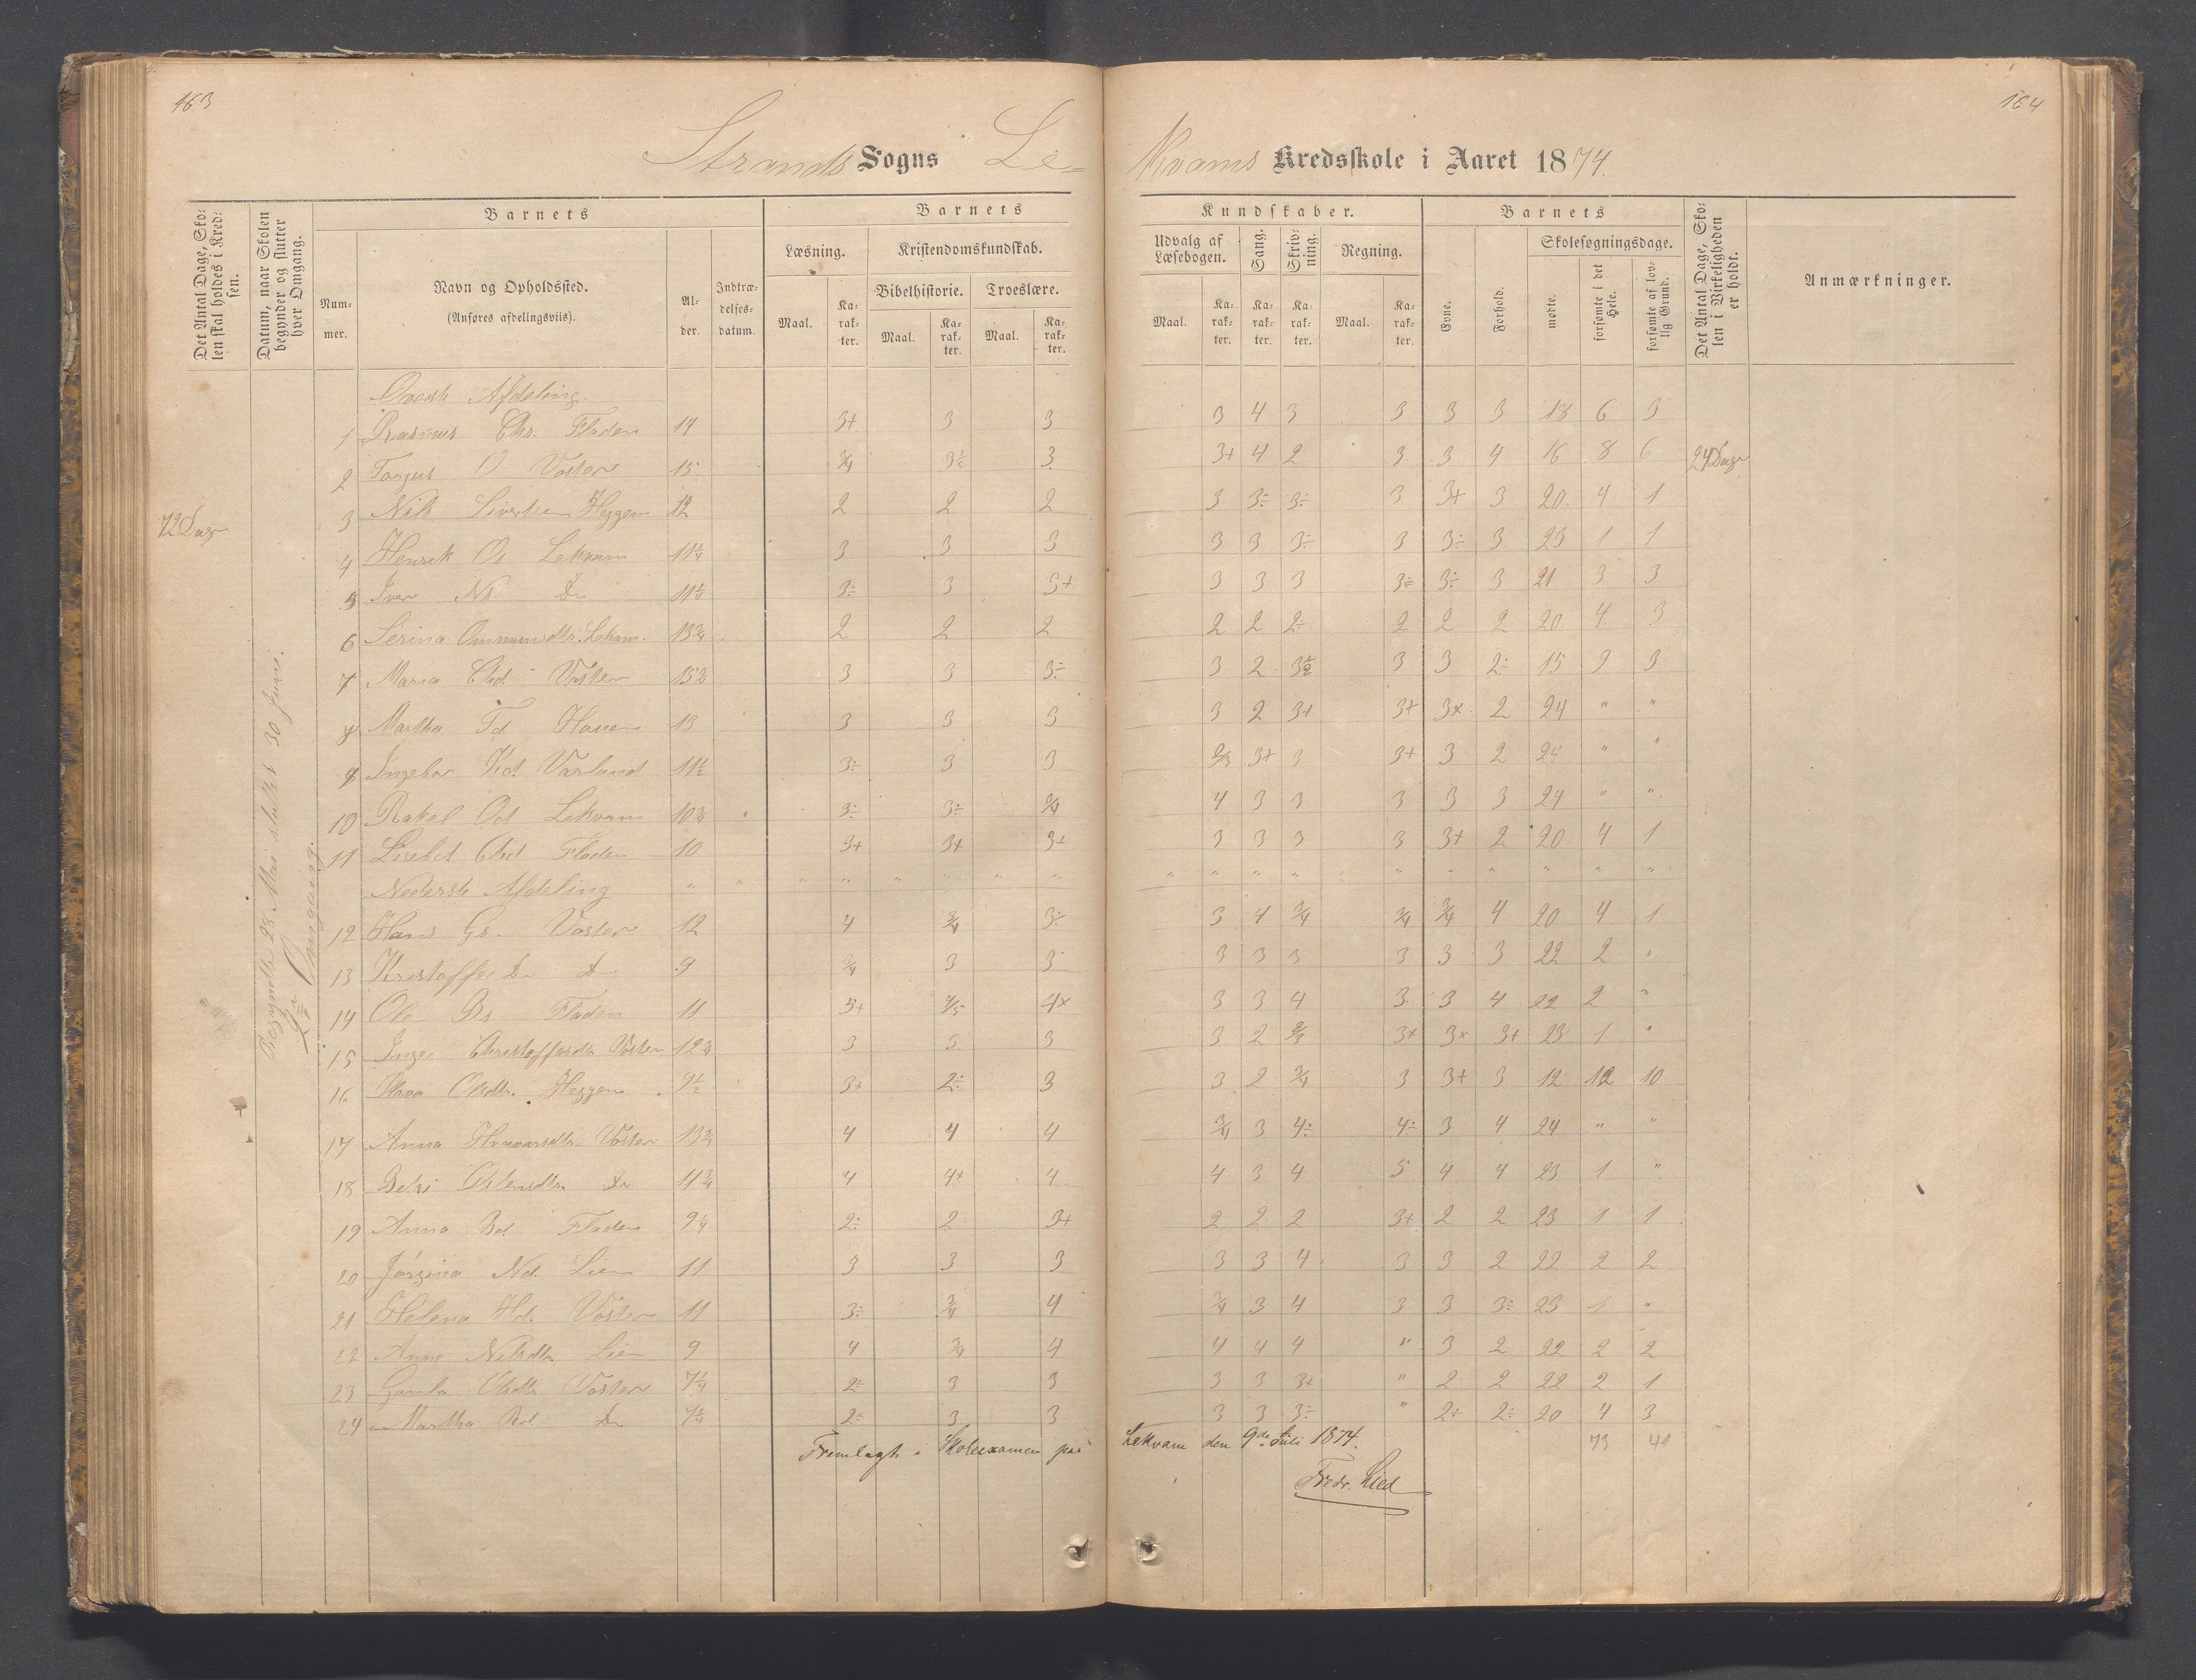 163
164
Strands Sogns Le-
Kvams Kredsskole i Aaret 1874.
Det Antal Dage, Sko-
len skal holdes i Kred-
sen.
Datum, naar Skolen
begynder og slutter
hver Omgang.
Barnets
Num-
mer.
Navn og Opholdssted.
(Anføres afdelingsviis).
Al-
der.
Indtræ-
delses-
datum.
Barnets
Læsning.
Kristendomskundskab.
Bibelhistorie.
Troeslære.
Maal.
Ka-
rak-
ter.
Maal.
Ka-
rak-
ter.
Maal.
Ka-
rak-
ter.
Kundskaber.
Udvalg af
Læsebogen.
Sang.
Skriv-
ning.
Regning.
Maal.
Ka-
rak-
ter.
Ka-
rak-
ter.
Ka-
rak-
ter.
Maal.
Ka-
rak-
ter.
Barnets
Evne.
Forhold.
Skolesøgningsdage.
mødte.
forsømte i det
Hele.
forsømte af lov-
lig Grund.
Det Antal Dage, Sko-
len i Virkeligheden
er holdt.
Anmærkninger.
72 Dage
Begyndte 28 Mai sluttet 30 Juni.
Omgang.
Øverste Afdeling.
1 Rasmus Chs. Fladen 14 3+ 3 3 3 4 3 3 3 3 18 6 3
2 Torjus O Voster 15 3/4 3½ 3 3+ 4 2 3 3 4 16 8 6 24 Dage
3 Nils Sivertsen Heggem 12 2 2 2 3 3÷ 3÷ 3 3+ 3 20 4 1
4 Henrik Os Lekvam 11¼ 3 3 3 3 3 3÷ 3 3÷ 3 23 1 1
5 Iver Ns. Do 11½ 3÷ 3 3+ 3 3 3 3÷ 3÷ 3 21 3 3
6 Serina Ommundsdtr. Lekvam. 13¾ 2 2 2 2 2 2÷ 2 2 2 20 4 3
7 Maria Chd. Voster 13¾ 3 3 3÷ 3 2 3½ 3 3 2÷ 15 9 3
8 Martha Td 13 3 3 3 3 2 3+ 3+ 3× 2 24 " "
9 Ingebor Kd. Varland 11½ 3÷ 3 3 2/3 3+ 3 3+ 3 2 24 " "
10 Rakel Od Lekvam 10¾ 3÷ 3÷ 3/4 4 3 3 3 3 3 24 " "
11 Lisebet Chd Fladen 10 3+ 3+ 3+ 3 3 3 3 3+ 2 20 4 1
Nederste Afdeling " " " " " " " " " " " " " " " " " " "
12 Hans Gs. Voster 12 4 3/4 3÷ 3 4 3/4 3/4 3/4 4 20 4 1
13 Kristoffer Do Do 9 3/4 3 3 3 3 3 3 3 3 22 2 "
14 Ole Bs Fladen 11 5+ 4/5 4× 3 3 4 3 3 4 22 2 "
15 Inger Christoffersdtr. Voster 12¾ 3 3 3 3 2 2/3 3+ 3× 3+ 23 1 "
16 Olsdtr. Heggem 9½ 3+ 2÷ 3 3 2 3/4 3 3+ 3 12 12 10
17 Anna Haavarsdtr. Voster 13¾ 4 4 4 3/4 3 4÷ 4÷ 3 4 24 " "
18 Betsi Ostensdtr. Do 11¾ 4 4× 4 4 3 4 5 4 4 23 1 "
19 Anna Bd Fladen 9¼ 2÷ 2 3+ 2 2 2 3+ 2 2 23 1 1
20 Jørgina Nd. Lie 11 3 3 3 3 3 4 3 3 2 22 2 2
21 Helena Hd. Voster 11 3÷ 3/4 4 3/4 3 4 3 3 3÷ 23 1 "
22 Anne Nilsdtr. Lie 9 4 3/4 4 4 4 4 " 3 2 22 2 2
23 Olsdtr. Voster 7¼ 2÷ 3 3 3 3 3+ " 2 2 22 2 1
24 Martha Rd Do 7½ 2÷ 3 3 3 3 3÷ " 2÷ 2÷ 20 4 3
73 41
Fremlagt i Skoleexamen paa Lekvam den 9de Juli 1874.
Fredr. Lied